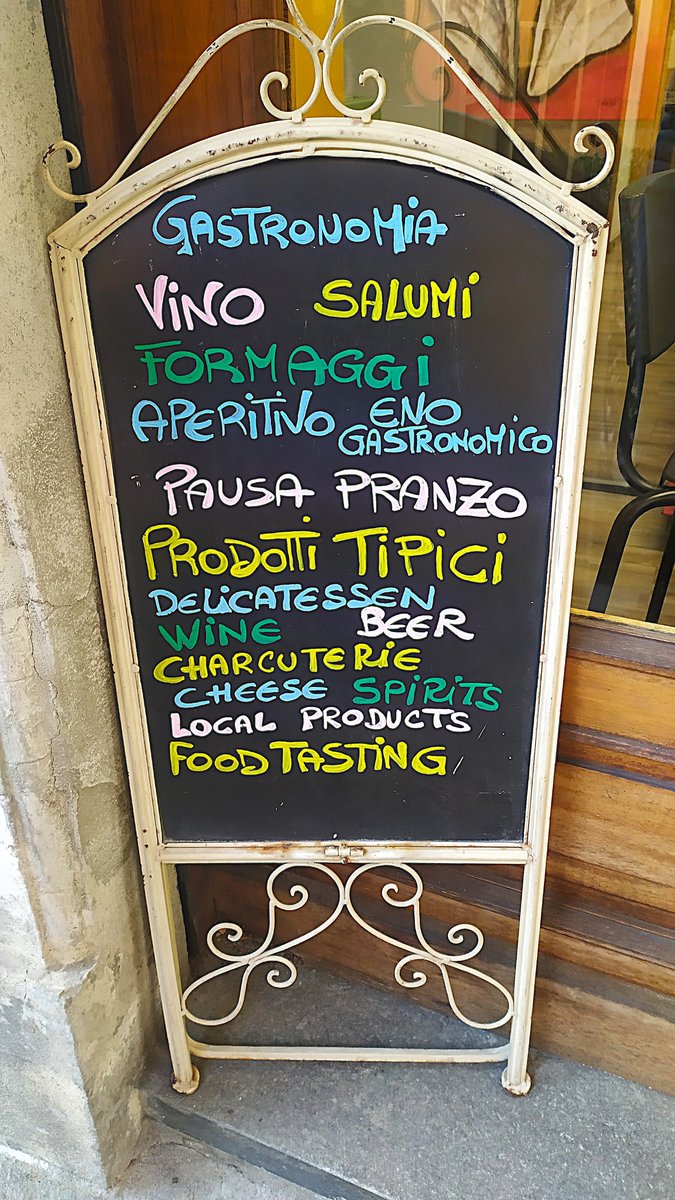 GASTRONOMiA
ViNO SALUMi
FORMAGGi
APERITIVO ENO
GASTRONOMICO
PAUSA PRANZO
PRODOTTi TiPiCi
DELiCATESSEN
WINE BEER
CHARCUTERiE
CHEESE SPIRITS
LOCAL PRODUCTS
FOOD TASTING